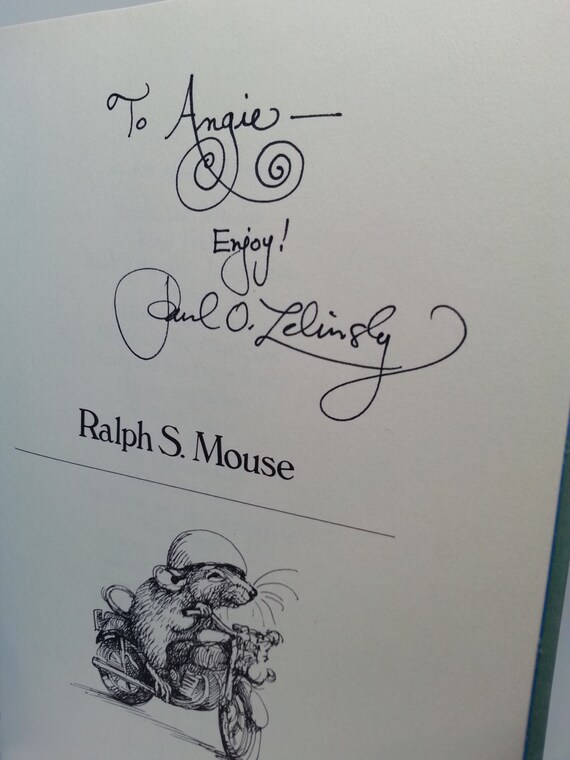 To Angie —
Enjoy!
Paul O. Zelinsky
Ralph S. Mouse